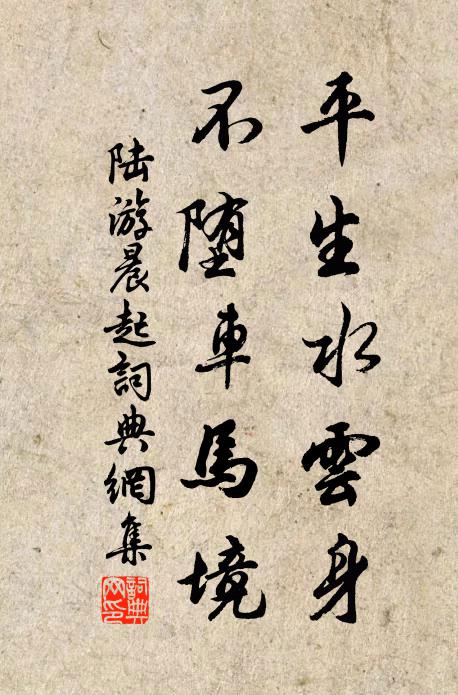 平生水雲身
不堕車馬境
陸游晨起詞典網集
詞典網印